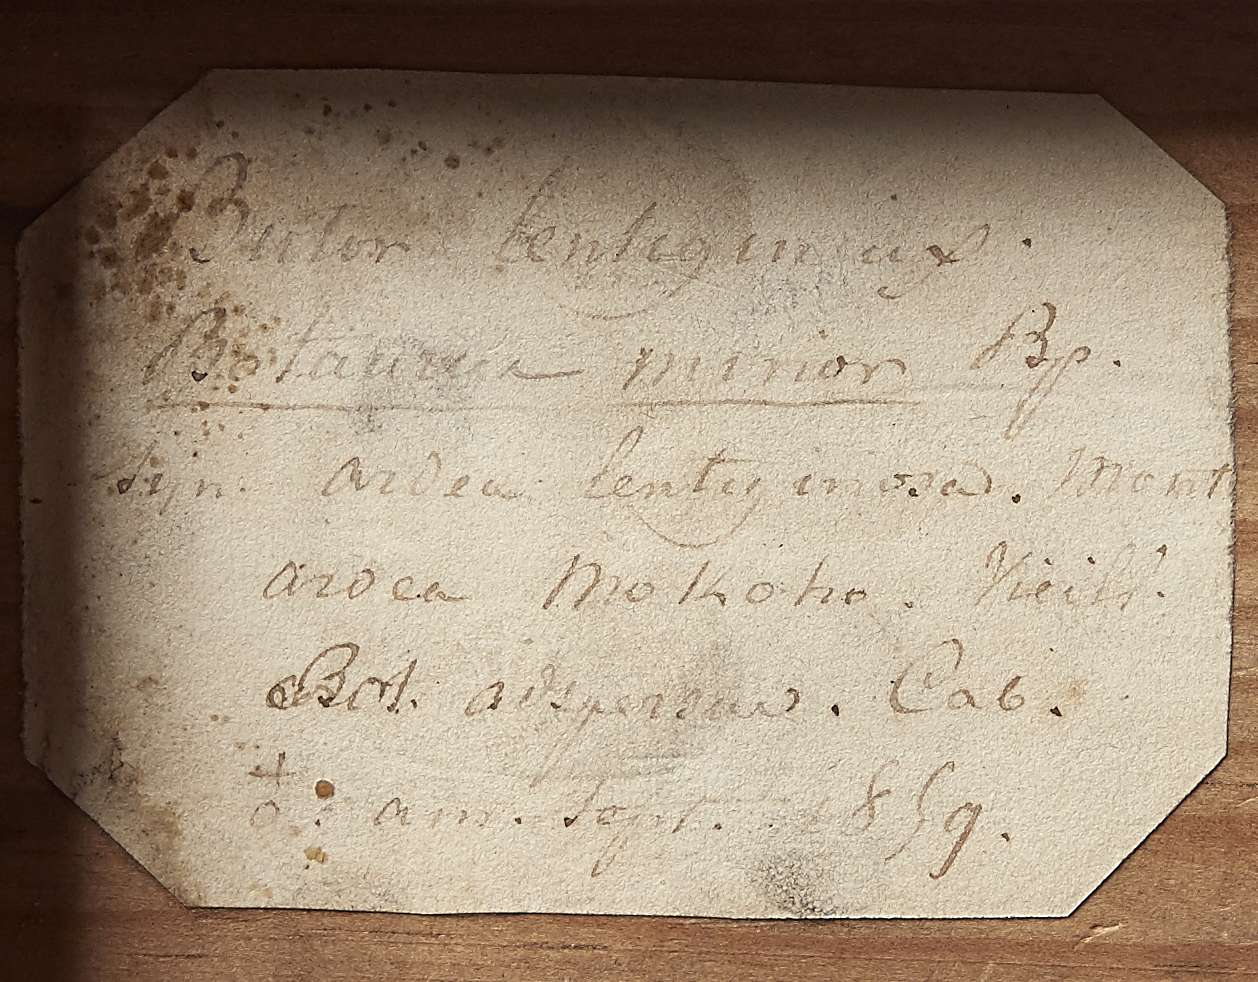 Butor lentigineux.
Botaurus minor Bp.
Syn. ardea lentiginosa. Mont
ardea Mokoho. Vieill.
Bot. adspersus. Cab.
♂. am. Sept. 1859.